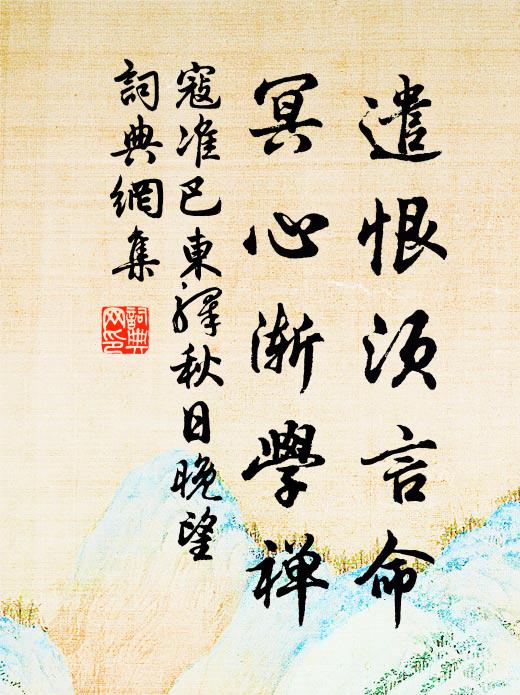 遣恨須言命
冥心漸學禅
寇准巴東驛秋日晚望
詞典網集
詞典
网印